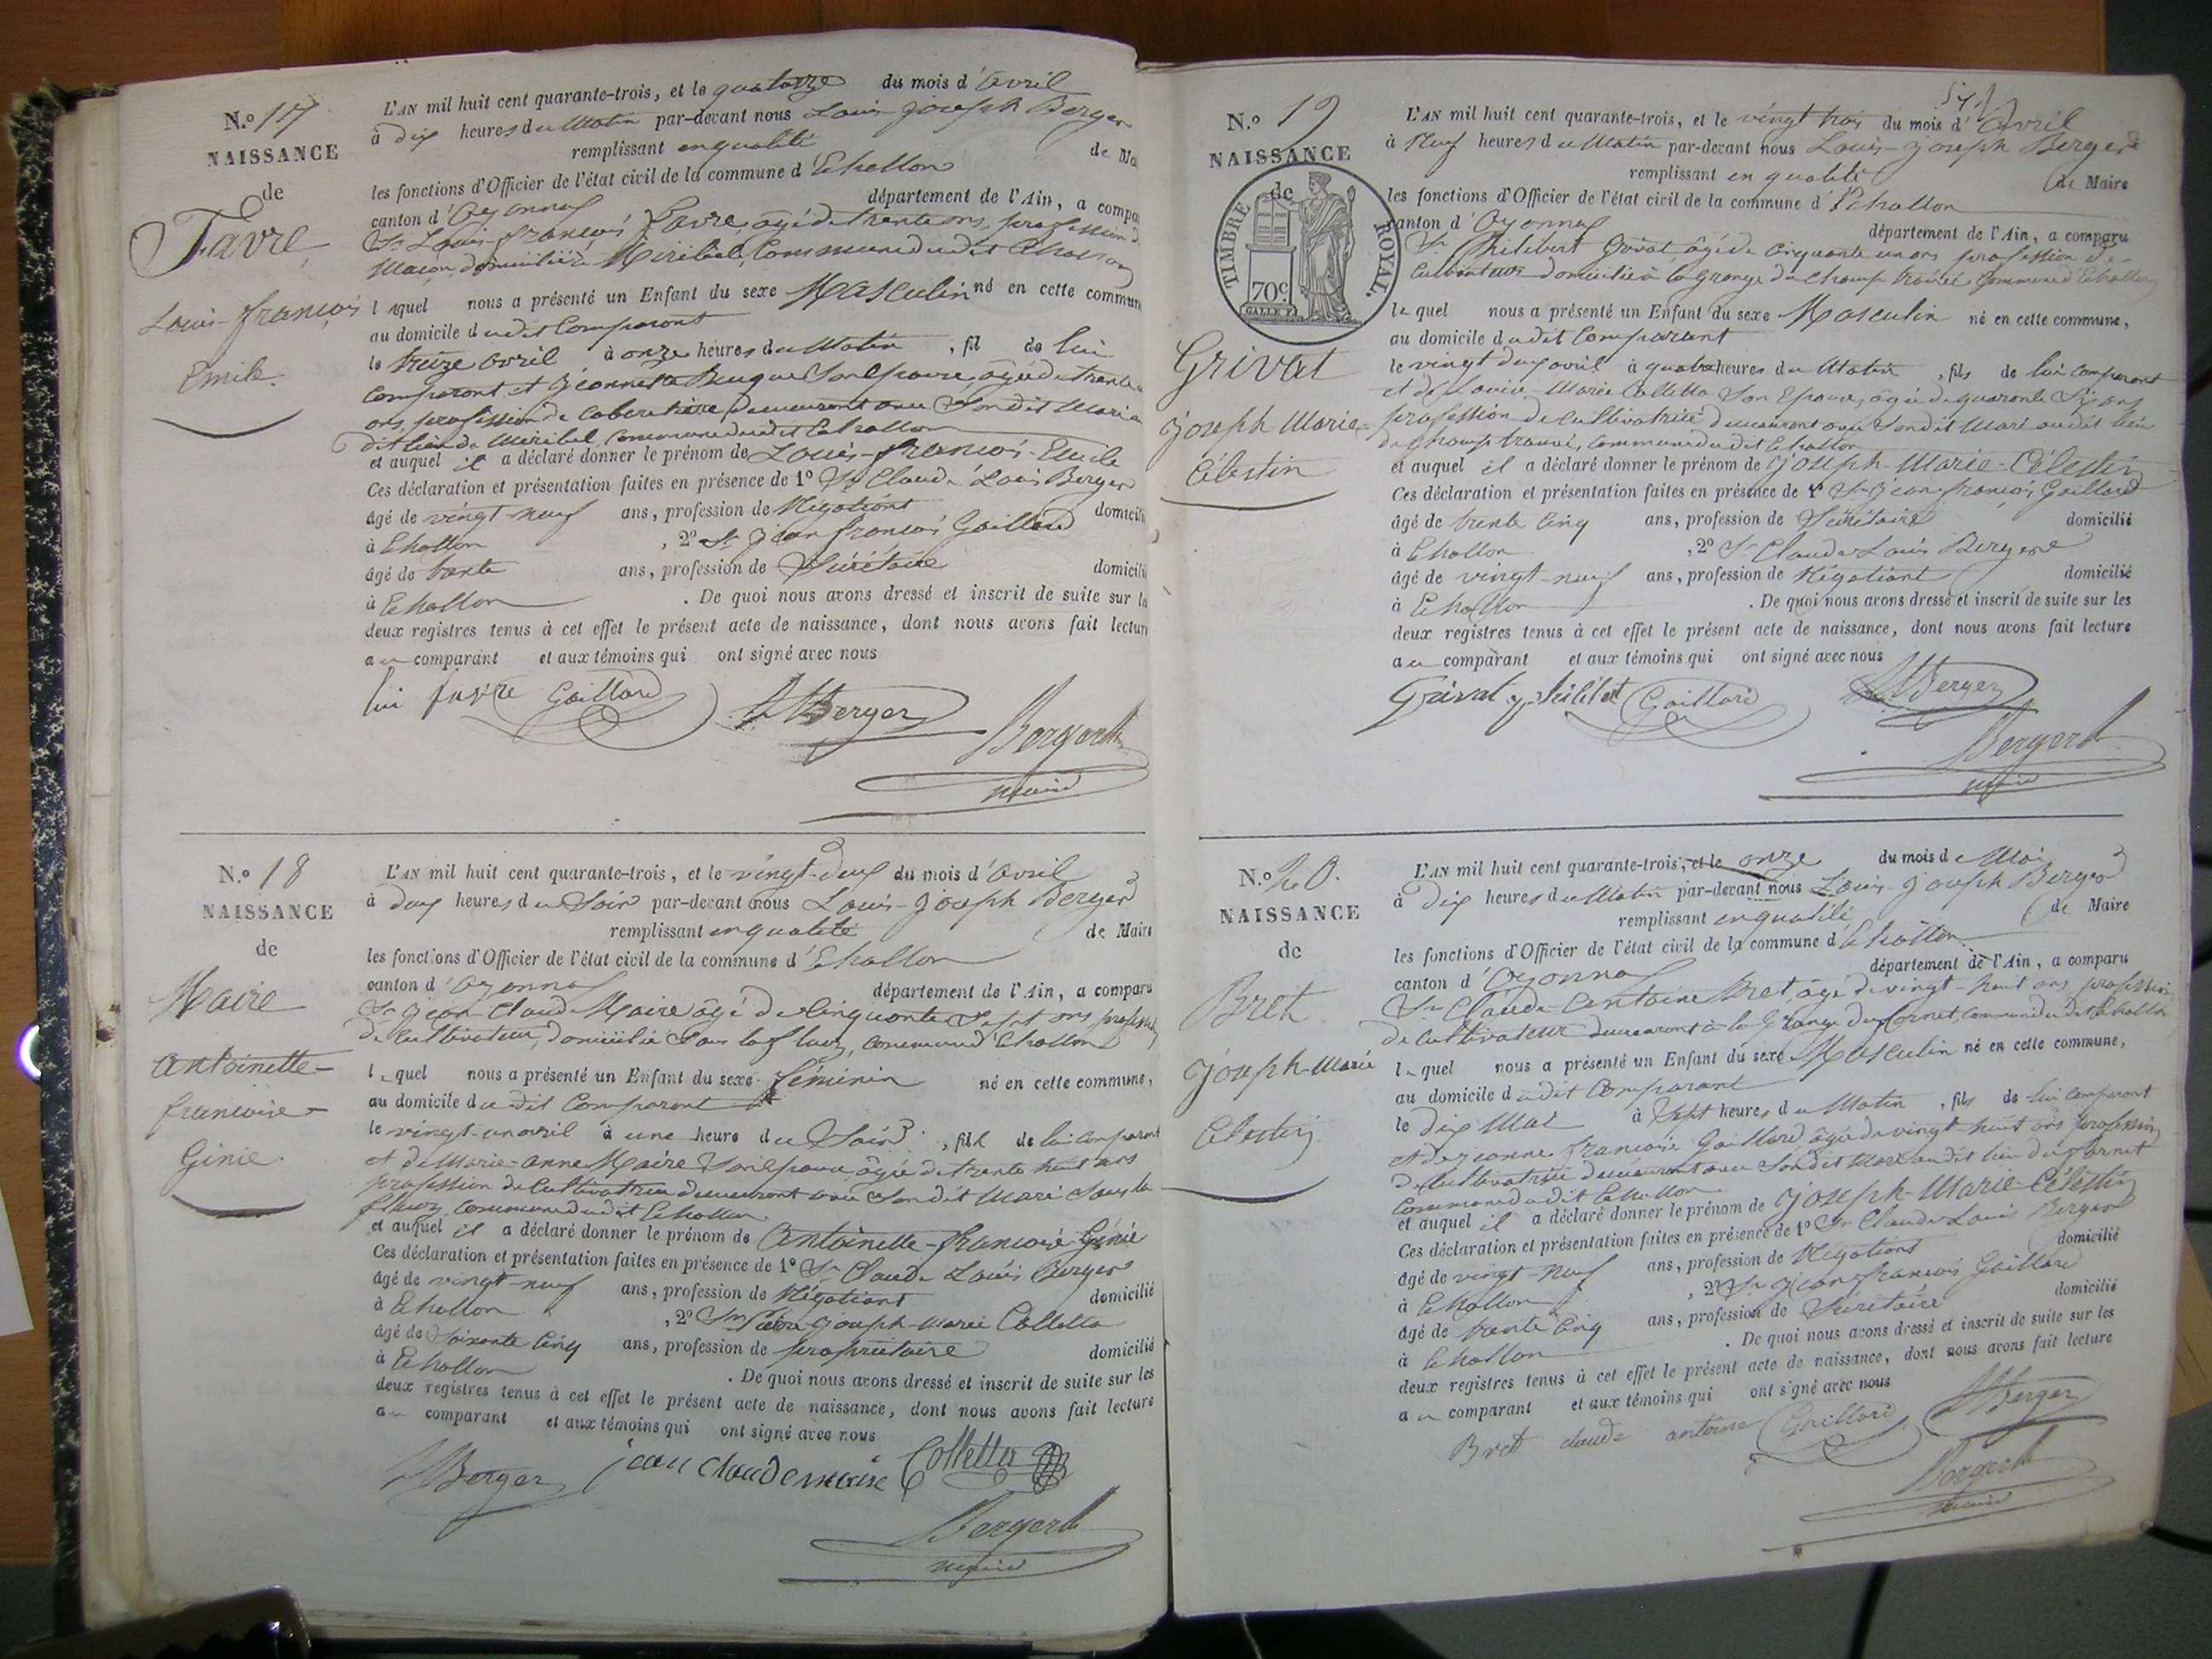 N.º 17
NAISSANCE
de
Favre
Louis-françois
Emile.
L'AN mil huit cent quarante-trois, et le quatorze du mois d'Avril
à dix heures du Matin par-devant nous Louis-Joseph Berger
remplissant en qualité de Ma
les fonctions d'Officier de l'état civil de la commune d'Echallon
canton d'Oyonnax département de l'Ain, a compa
Sr Louis-françois Favre, âgé de trente ans, profession d
Maçon, domicilié à Miribel, Commune dudit Echallon
lequel nous a présenté un Enfant du sexe Masculin né en cette commun
au domicile dudit Comparant
le treize avril à onze heures du Matin, fil de lui
comparant et Jeannette son Epouse, âgée de trente
ans, profession de demeurant avec Son dit Mari au
dit lieu de Miribel, commune dudit Echallon
et auquel il a déclaré donner le prénom de Louis-françois-Emile
Ces déclaration et présentation faites en présence de 1º Sr Claude Louis Berger
âgé de vingt-neuf ans, profession de Négotiant domicili
à Echallon, 2º Sr Jean françois Gaillard
âgé de trente ans, profession de Sécrétaire domicili
à Echallon. De quoi nous avons dressé et inscrit de suite sur l
deux registres tenus à cet effet le présent acte de naissance, dont nous avons fait lectur
au comparant et aux témoins qui ont signé avec nous
favre Gaillard Berger
Berger
maire
N.º 18
NAISSANCE
de
Maire
Antoinette-
françoise-
Génie.
L'AN mil huit cent quarante-trois, et le vingt-deux du mois d'Avril
à deux heures du Soir par-devant nous Louis-Joseph Berger
remplissant en qualité de Maire
les fonctions d'Officier de l'état civil de la commune d'Echallon
canton d'Oyonnax département de l'Ain, a comparu
Sr Jean-Claude Maire âgé de Cinquante Sept ans profession
de Cultivateur, domicilié Sous, commune d'Echallon
lequel nous a présenté un Enfant du sexe féminin né en cette commune,
au domicile du dit Comparant
le vingt-un avril à une heure du Soir, fille de lui comparant
et de Marie-anne Maire Son Epouse, âgée de trente huit ans
profession de Cultivatrice demeurant avec Son dit Mari Sous
commune dudit Echallon
et auquel il a déclaré donner le prénom de Antoinette-françoise-Génie
Ces déclaration et présentation faites en présence de 1º Sr Claude Louis Berger
âgé de vingt-neuf ans, profession de Négotiant domicilié
à Echallon, 2º Sr Joseph-Marie Colletta
âgé de Soixante Cinq ans, profession de propriétaire domicilié
à Echallon. De quoi nous avons dressé et inscrit de suite sur les
deux registres tenus à cet effet le présent acte de naissance, dont nous avons fait lecture
au comparant et aux témoins qui ont signé avec nous
Berger jean claude maire Colletta
Berger
maire
N.º 19
NAISSANCE
de
TIMBRE ROYAL.
70c
Grivat
Joseph Marie-
Célestin
L'AN mil huit cent quarante-trois, et le vingt trois du mois d'Avril
à Neuf heures du Matin par-devant nous Louis-Joseph Berger
remplissant en qualité de Maire
les fonctions d'Officier de l'état civil de la commune d'Echallon
canton d'Oyonnax département de l'Ain, a comparu
Sr Philibert Grivat, âgé de Cinquante un ans profession de
Cultivateur domicilié à la Grange du Champ trouvé, Commune d'Echallon
lequel nous a présenté un Enfant du sexe Masculin né en cette commune,
au domicile dudit Comparant
le vingt deux avril à quatre heures du Matin, fils de lui comparant
et de Louise-Marie Colletta Son Epouse, âgée de quarante Six ans
profession de Cultivatrice demeurant avec Son dit Mari audit lieu
de Champ trouvé, commune dudit Echallon
et auquel il a déclaré donner le prénom de Joseph-Marie-Célestin
Ces déclaration et présentation faites en présence de 1º Sr Jean françois Gaillard
âgé de trente Cinq ans, profession de Sécrétaire domicilié
à Echallon, 2º Sr Claude Louis Berger
âgé de vingt-neuf ans, profession de Négotiant domicilié
à Echallon. De quoi nous avons dressé et inscrit de suite sur les
deux registres tenus à cet effet le présent acte de naissance, dont nous avons fait lecture
au comparant et aux témoins qui ont signé avec nous
Grivat philibert Gaillard Berger
Berger
maire
N.º 20.
NAISSANCE
de
Bret
Joseph-Marie
Célestin
L'AN mil huit cent quarante-trois, et le onze du mois de Mai
à Dix heures du Matin par-devant nous Louis-Joseph Berger
remplissant en qualité de Maire
les fonctions d'Officier de l'état civil de la commune d'Echallon
canton d'Oyonnax département de l'Ain, a comparu
Sr Claude-Antoine Bret âgé de vingt-huit ans profession
de Cultivateur demeurant à la Grange du Cornet, commune dudit Echallon
lequel nous a présenté un Enfant du sexe Masculin né en cette commune,
au domicile dudit Comparant
le dix Mai à Sept heures du Matin, fils de lui comparant
et de Jeanne françoise Gaillard âgée de vingt huit ans profession
de Cultivatrice demeurant avec Son dit Mari audit lieu du Cornet
Commune dudit Echallon
et auquel il a déclaré donner le prénom de Joseph-Marie-Célestin
Ces déclaration et présentation faites en présence de 1º Sr Claude Louis Berger
âgé de vingt-neuf ans, profession de Négotiant domicilié
à Echallon, 2º Sr Jean-françois Gaillard
âgé de trente Cinq ans, profession de Sécrétaire domicilié
à Echallon. De quoi nous avons dressé et inscrit de suite sur les
deux registres tenus à cet effet le présent acte de naissance, dont nous avons fait lecture
au comparant et aux témoins qui ont signé avec nous
Bret claude antoine Gaillard Berger
Berger
maire